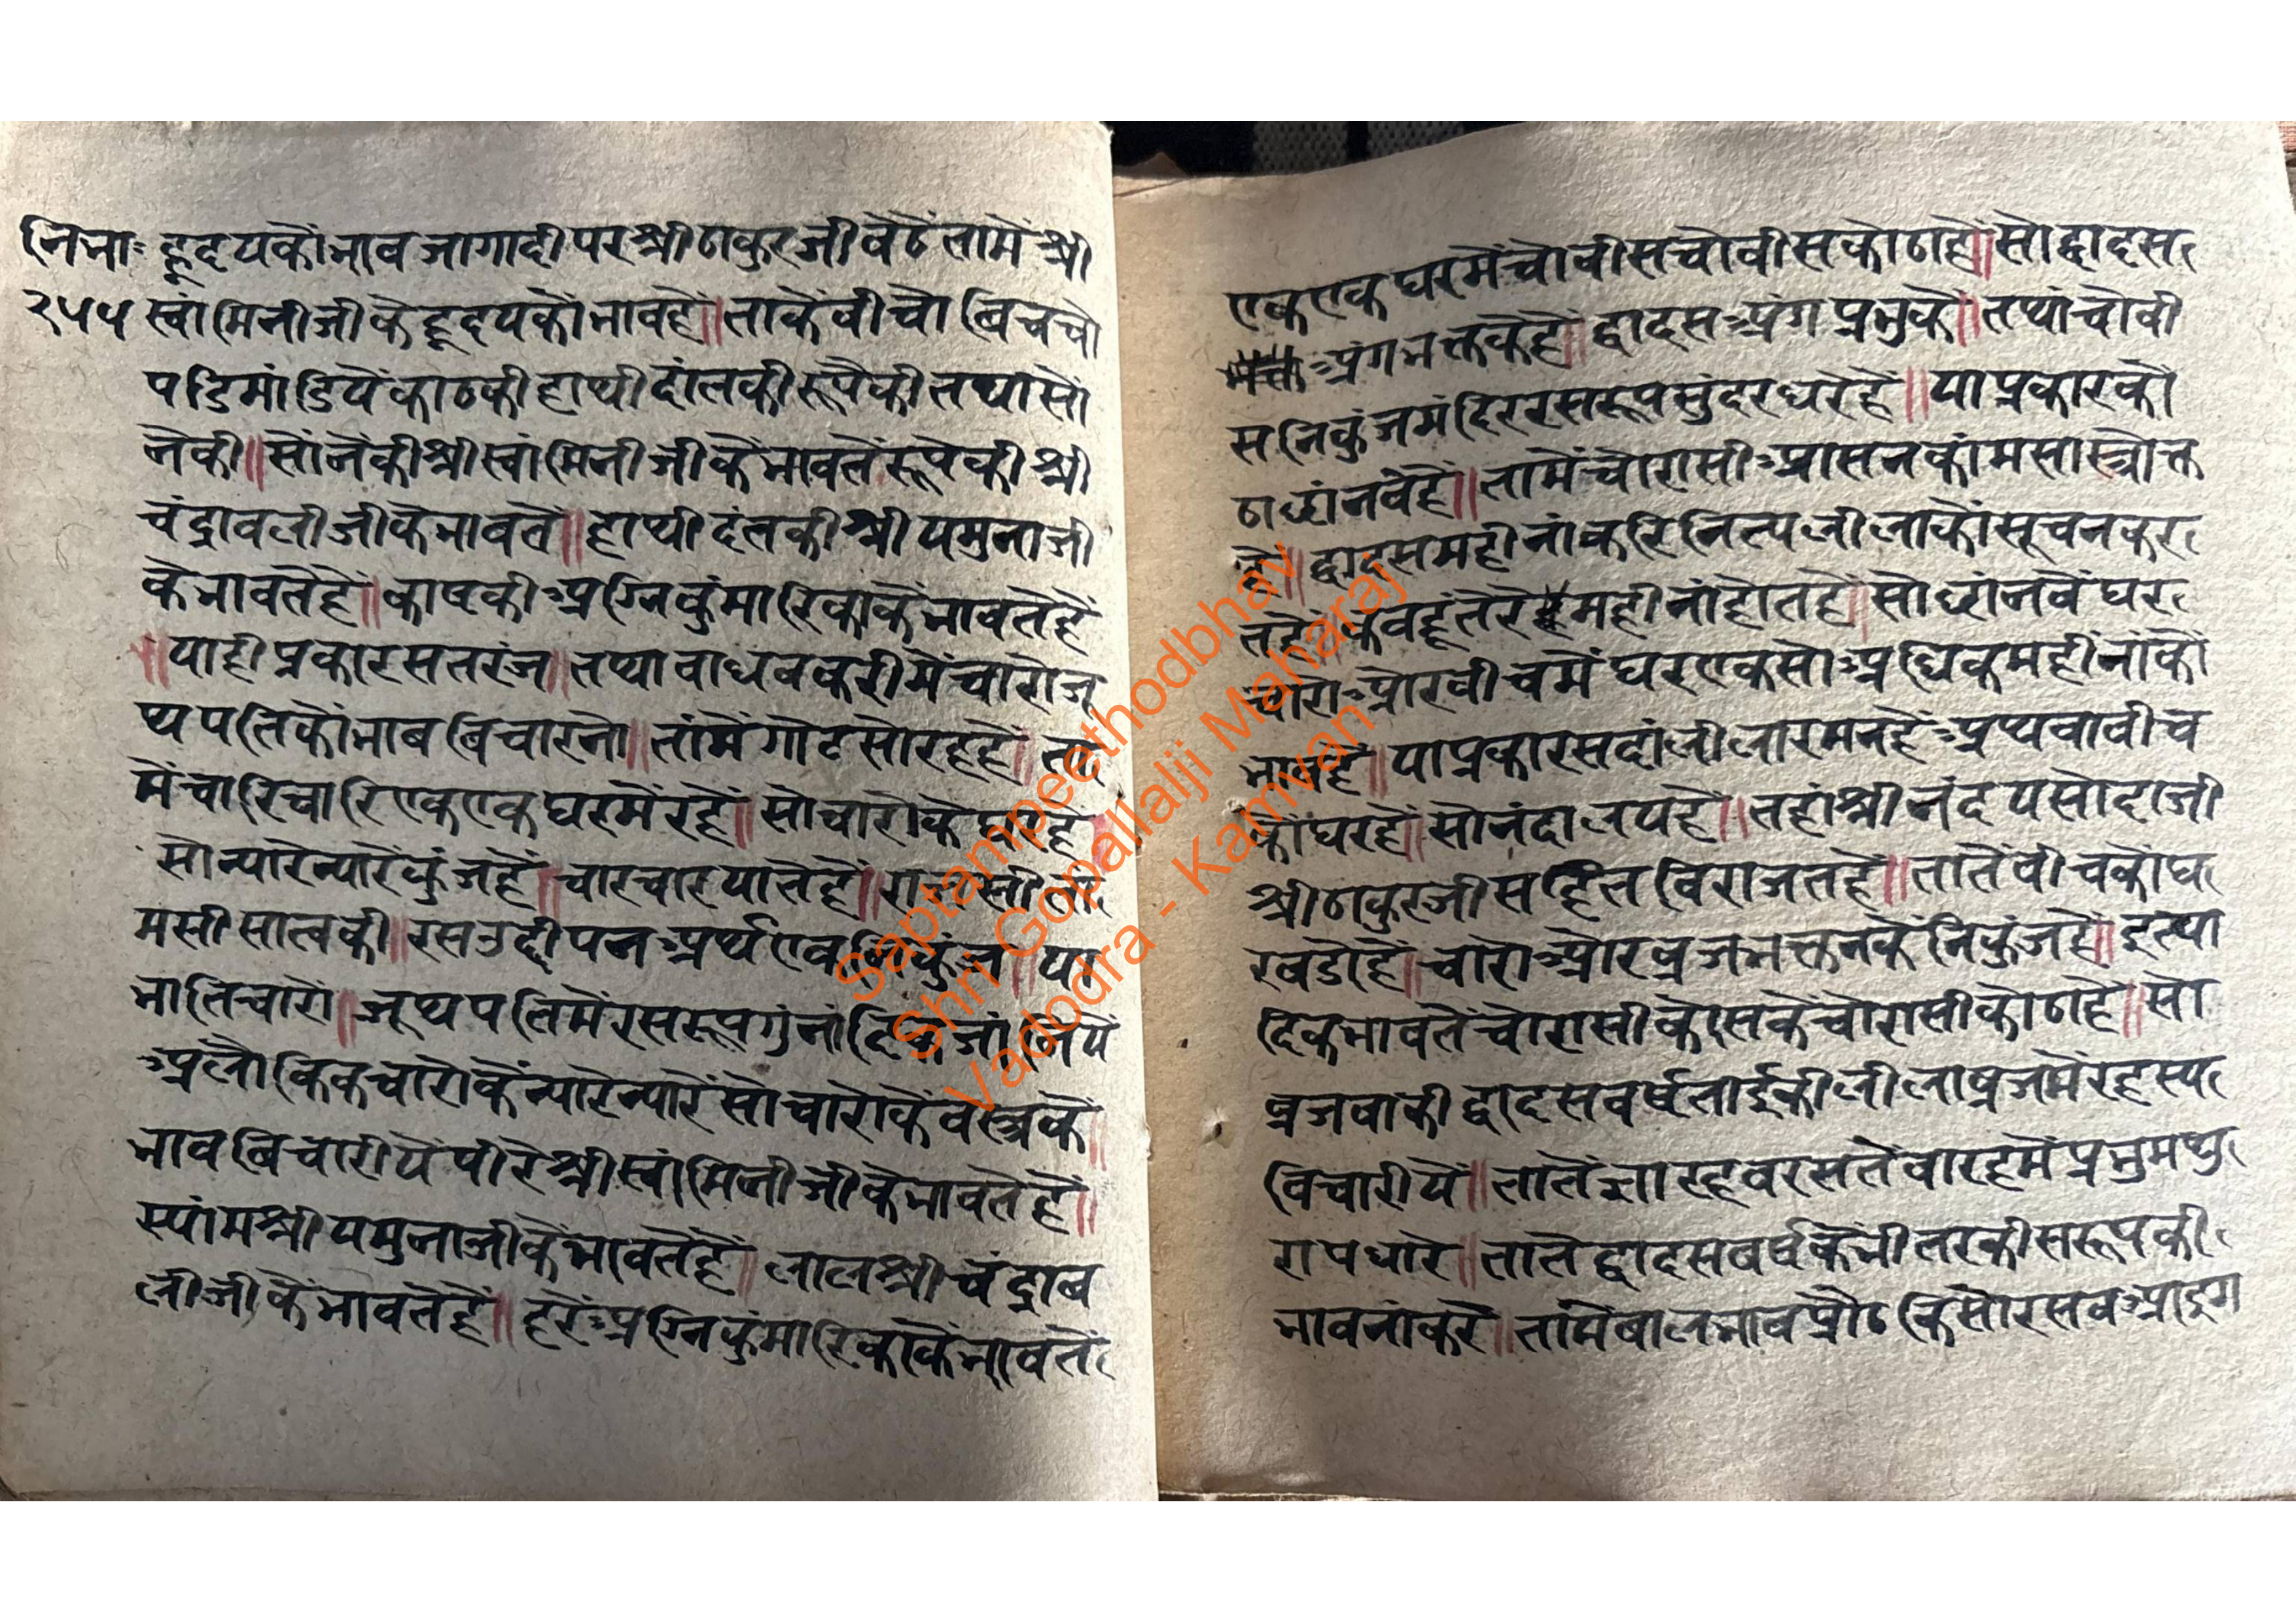 निभाः हृदयकौंभाव जागादी परश्रीठाकुरजी बैठें तामें श्री
२५५ स्वामिनीजीकेहृदयकौंभावहै॥ ताकेंवीचौ बिचचो
पडिमांडियेंकाठकीहाथीदांतकी रूपैकी तथासों
नेंकी॥सोंनेंकीश्रीस्वांमिनीजीकेंभावतेंरूपेकीश्री
चंद्रावलीजीकेभावतें॥ हाथीदंतकी श्रीयमुनाजी
केभावतेहैं॥काष्टकी अग्निकुंमारिकाकेंभावतेहैं
॥याही प्रकारसतरंज॥तथा वाघबकरीमेंचारोजू
थपतिकोंभाबबिचारनो॥तांमेंगोटसोरहहैं॥ ता
मेंचारिचारिएकएक घरमेंरहें॥ सोचारोंके घरहै
सोन्यारेन्यारेंकुंजहैं॥चारचारयातेहैं॥
मसीसात्वकी॥रसउद्दीपन अर्थएव ॥या
भातिचारों॥जूथपतिमेंरसरूपगुंनां
अलौकिकचारोकेंन्यारेन्यारेंसोचारोकेंवस्त्रके॥
भावबिचारीयें पीरेश्रीस्वांमिनीजीकेभावतेहैं॥
स्यांमश्रीयमुनाजीकेंभावतेहैं॥लालश्रीचंद्राब
लीजीकेंभावतेहैं॥हरेंअग्निकुंमारिकाकेंभावतें
एकएकघरमेंचोवीसचोवीसकोठाहैं॥सोद्वादस
अंगभक्तकेहैं॥द्वादसअंगप्रभुके॥तथांचोवी
सनिकुंजमंदिररसरूपसुंदरघरहैं॥याप्रकारकौ
ठाछांनवेहैं॥तामेंचौरासीआसनकांमसास्त्रोक्त
है॥द्वादसमहीनांकरिनित्यलीलाकौंसूचनकर
तहैं॥कवहूंतेरहमहीनांहोतहै॥सोछांनवेंघर
चारोओरवीचमेंघरएकसोअधिकमहींनांकौ
भावहै॥याप्रकारसदांलीलारमनहैं अथवावीच
कोंघरहैं॥सोनंदालयहै॥तहांश्रीनंदयसोदाजी
श्रीठाकुरजीसहितविराजतहैं॥तातेंवीचकोंघ
रबडोहैं॥चारोओरव्रजभक्तनकेंनिकुंजहैं॥इत्या
दिकभावतेंचोरासीकोसकेचोरासीकोठाहै॥सो
व्रजवाकीद्वादसवर्षतांईकीलीलाव्रजमेंरहस्य
विचारीयें॥तातेंग्यारहवरसतेंबारहमेंप्रभुमथु
रापधारे॥तातेंद्वादसबर्षकेंभीतरकीसरूपकी
भावनांकरें॥तांमेंबालभावप्रौढकिसोरसवआइग